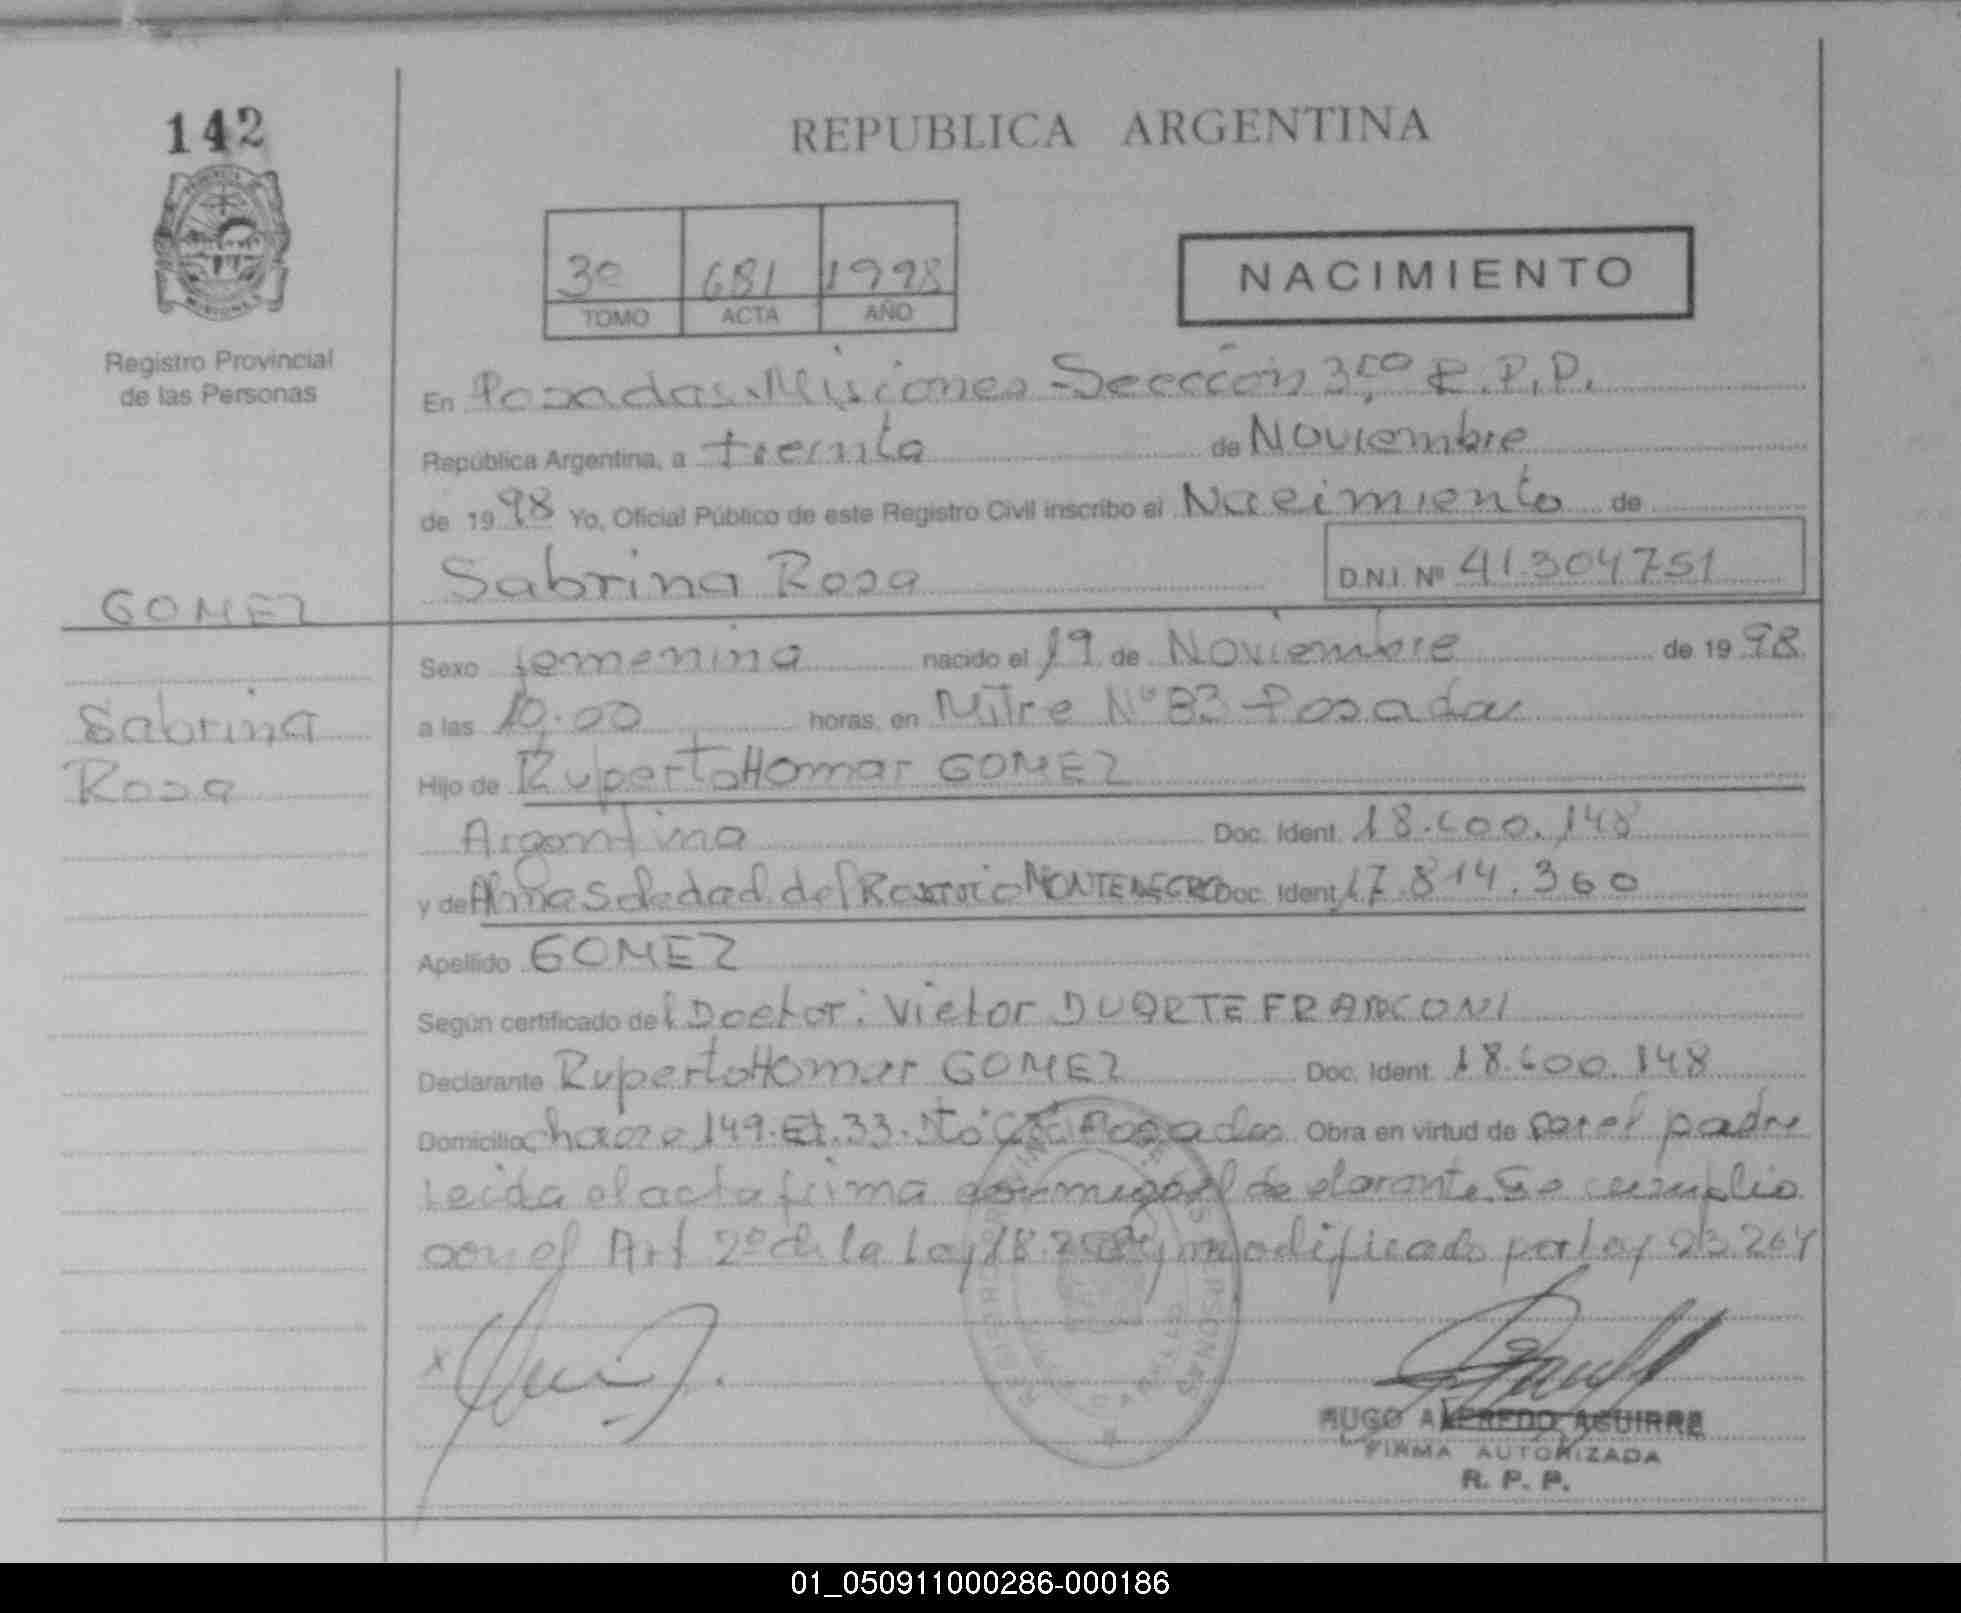 142
REPUBLICA ARGENTINA
3º 681 1998
TOMO ACTA AÑO
NACIMIENTO
Registro Provincial
de las Personas
En Posadas-Misiones-Sección 3ra R.P.P.
República Argentina, a treinta de Noviembre
de 1998 Yo, Oficial Público de este Registro Civil inscribo el Nacimiento de
Sabrina Rosa D.N.I. Nº 41.304751
GOMEZ
Sabrina
Rosa
Sexo femenina nacido el 19 de Noviembre de 1998
a las 10,00 horas, en Mitre Nº 83 Posadas
Hijo de Ruperto Homar GOMEZ
Argentina Doc. Ident. 18.600.148
y de Alma Soledad del Rosario MONTENEGRO Doc. Ident. 17.814.360
Apellido GOMEZ
Según certificado del Doctor: Victor DUARTE FRANCONI
Declarante Ruperto Homar GOMEZ Doc. Ident. 18.600.148
Domicilio chacra 149. Ed. 33. Posadas Obra en virtud de ser el padre
Leida el acta firma conmigo el declarante. Se cumplio
con el Art 2º de la Ley 18.248 y modificado por Ley 23.264
HUGO ALFREDO AGUIRRE
FIRMA AUTORIZADA
R. P. P.
01_050911000286-000186